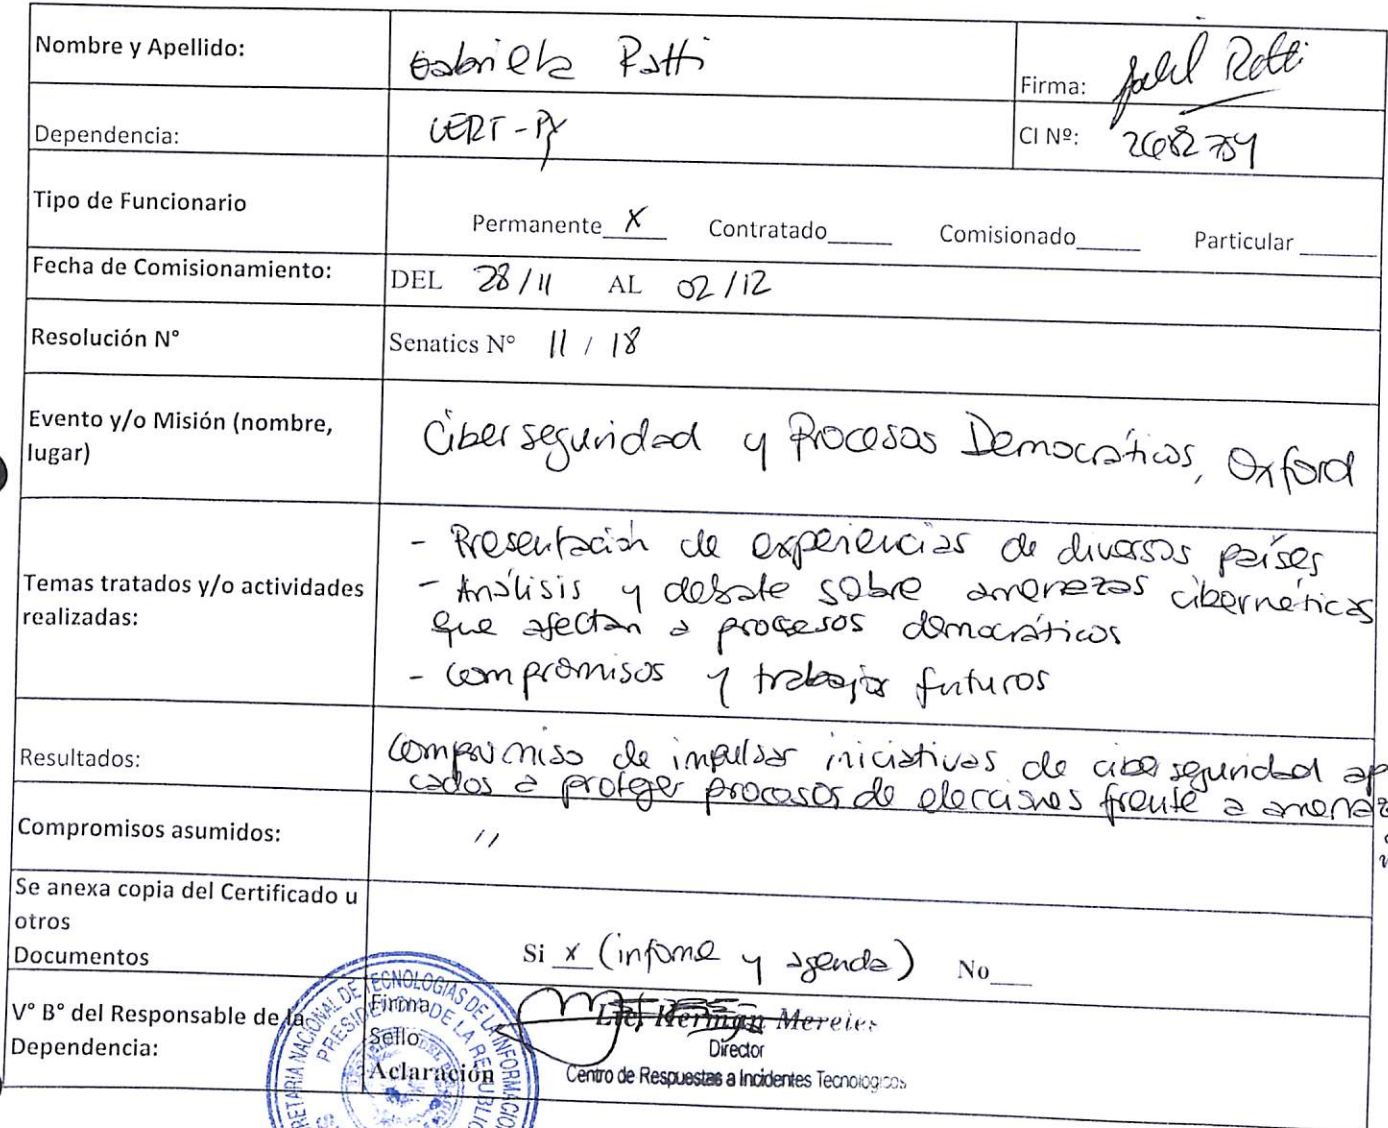 Nombre y Apellido:
Gabriela Ratti
Firma:
Dependencia:
CERT-PY
CI Nº: 2682754
Tipo de Funcionario
Permanente X Contratado____ Comisionado____ Particular____
Fecha de Comisionamiento:
DEL 28/11 AL 02/12
Resolución N°
Senatics N° 11 / 18
Evento y/o Misión (nombre,
lugar)
Ciberseguridad y Procesos Democráticos, Oxford
Temas tratados y/o actividades
realizadas:
- Presentación de experiencias de diversos países
- Análisis y debate sobre amenazas cibernéticas
que afectan a procesos democráticos
- Compromisos y trabajos futuros
Resultados:
Compromiso de impulsar iniciativas de ciberseguridad ap
cados a proteger procesos de elecciones frente a amenaz
Compromisos asumidos:
//
Se anexa copia del Certificado u
otros
Documentos
Si x (informe y agenda) No___
V° B° del Responsable de la
Dependencia:
Firma
Sello
Aclaración
Lic. Herman Mereles
Director
Centro de Respuestas a Incidentes Tecnologicos
SECRETARIA NACIONAL DE TECNOLOGIAS DE LA INFORMACION
PRESIDENCIA DE LA REPUBLIC